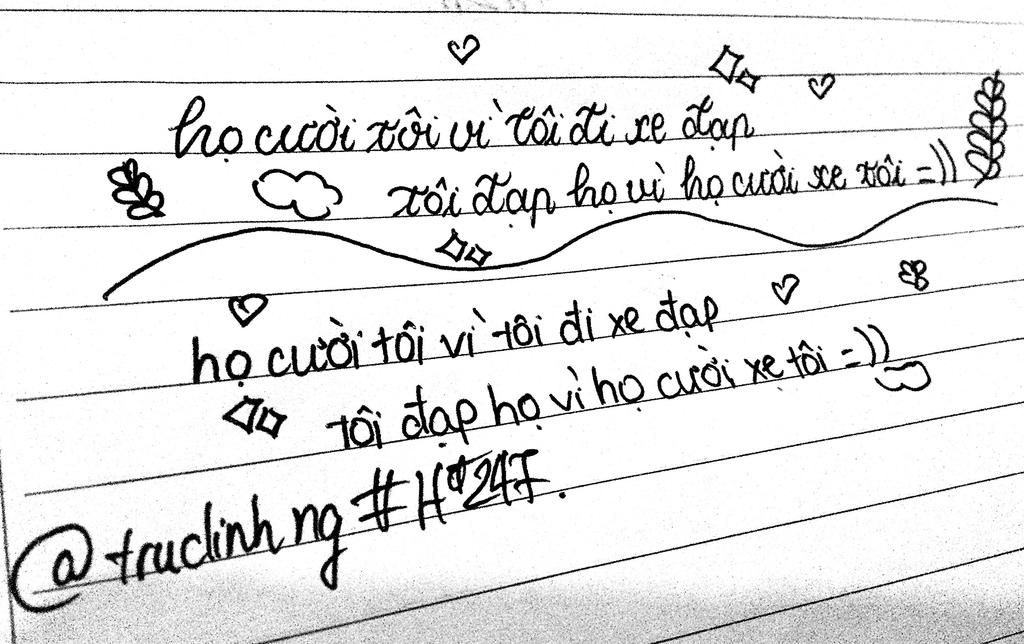 họ cười tôi vì tôi đi xe đạp
tôi đạp họ vì họ cười xe tôi =))
họ cười tôi vì tôi đi xe đạp
tôi đạp họ vì họ cười xe tôi =))
@truclinh ng